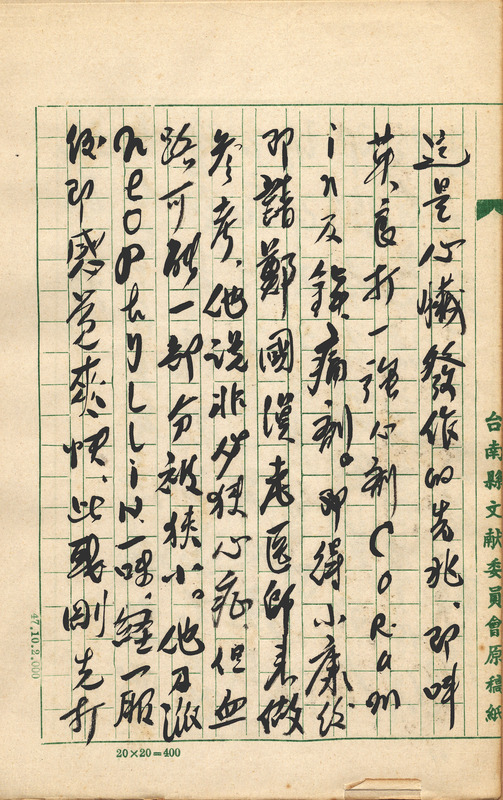 這是心臟發作的先兆、即叫
英良打一強心劑Coram
in及鎮痛劑。即得小康後
即請鄭國漢老医師来做
参考、他說非係狹心症、但血
路可能一部分被狹小。他乃派
Neophyllin一味、経一服
後即感覚爽快、此
剛先打
台南縣文獻委員會原稿紙
20×20=400
47.10.2.000